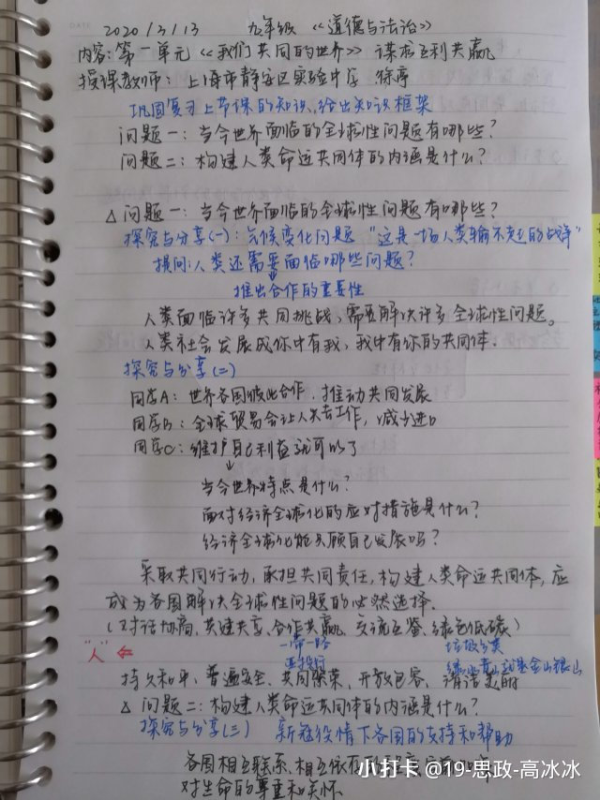 2020/3/13 九年级 《道德与法治》
内容:第一单元《我们共同的世界》 谋求互利共赢
授课教师: 上海市静安区实验中学 徐亭
巩固复习上节课的知识,给出知识框架
问题一:当今世界面临的全球性问题有哪些?
问题二:构建人类命运共同体的内涵是什么?
△问题一:当今世界面临的全球性问题有哪些?
探究与分享(一):气候变化问题 "这是一场人类输不起的战争"
提问:人类还需要面临哪些问题?
推出合作的重要性
人类面临许多共同挑战,需要解决许多全球性问题。
人类社会发展成你中有我,我中有你的共同体.
探究与分享(二)
同学A: 世界各国彼此合作,推动共同发展
同学B: 全球贸易会让人失去工作,减少进口
同学C: 维护自己利益就可以了
↓
当今世界特点是什么?
面对经济全球化的应对措施是什么?
经济全球化能只顾自己发展吗?
采取共同行动,承担共同责任,构建人类命运共同体,应
成为各国解决全球性问题的必然选择.
(对话协商、共建共享、合作共赢、交流互鉴、绿色低碳)
"人" ⇐ 一带一路 垃圾分类
亚投行 绿水青山就是金山银山
持久和平、普遍安全、共同繁荣、开放包容、清洁美丽
△ 问题二:构建人类命运共同体的内涵是什么?
探究与分享(三) 新冠疫情下各国的支持和帮助
各国相互联系、相互依存
对生命的尊重和关怀
小打卡 @19-思政-高冰冰